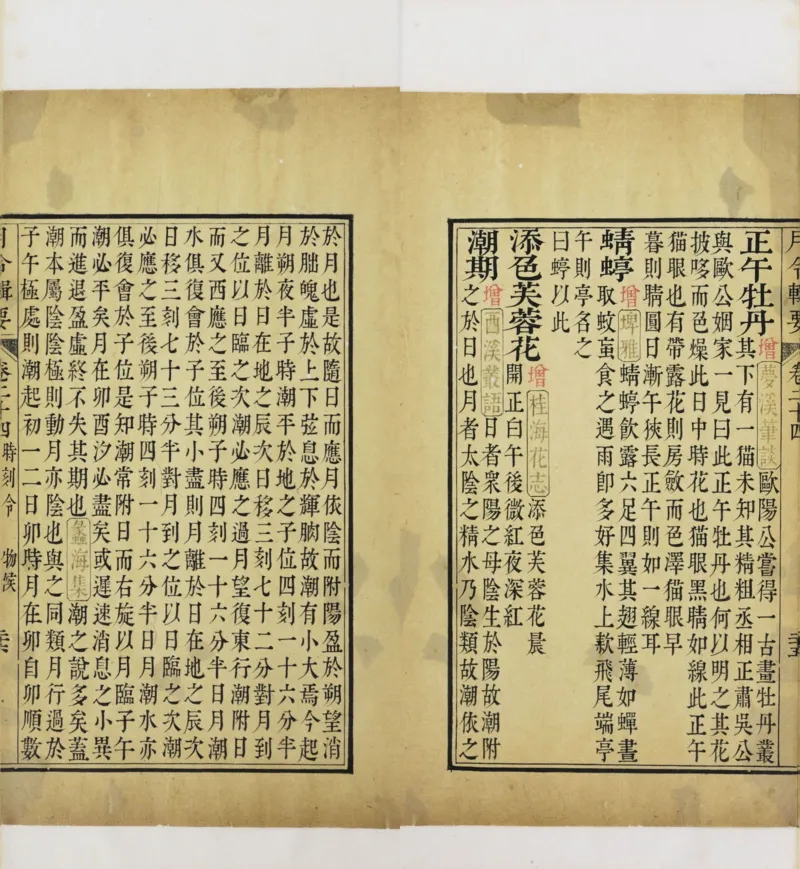 月令輯要 卷二十四 三五
正午牡丹 增 夢溪筆談 歐陽公嘗得一古畫牡丹叢
其下有一猫未知其精粗丞相正肅吳公
與歐公姻家一見曰此正午牡丹也何以明之其花
披哆而色燥此日中時花也猫眼黑睛如線此正午
猫眼也有帶露花則房斂而色澤猫眼早
暮則睛圓日漸午狹長正午則如一線耳
蜻蜓 增 埤雅 蜻蜓飲露六足四翼其翅輕薄如蟬晝
取蚊蝱食之遇雨即多好集水上欵飛尾端亭
午則亭名之
曰蜓以此
添色芙蓉花 增 桂海花志 添色芙蓉花晨
開正白午後微紅夜深紅
潮期 增 西溪叢語 日者衆陽之母陰生於陽故潮附
之於日也月者太陰之精水乃陰類故潮依之
於月也是故隨日而應月依陰而附陽盈於朔望消
於朏魄虛於上下弦息於輝朒故潮有小大焉今起
月朔夜半子時潮平於地之子位四刻一十六分半
月離於日在地之辰次日移三刻七十二分對月到
之位以日臨之次潮必應之過月望復東行潮附日
而又西應之至後朔子時四刻一十六分半日月潮
水俱復會於子位其小盡則月離於日在地之辰次
日移三刻七十三分半對月到之位以日臨之次潮
必應之至後朔子時四刻一十六分半日月潮水亦
俱復會於子位是知潮常附日而右旋以月臨子午
潮必平矣月在卯酉汐必盡矣或遲速消息之小異
而進退盈虛終不失其期也 蠡海集 潮之說多矣蓋
潮本屬陰陰極則動月亦陰也與之同類月行過於
子午極處則潮起初一二日卯時月在卯自卯順數
月令輯要 卷二十四 時刻令 物候 三六